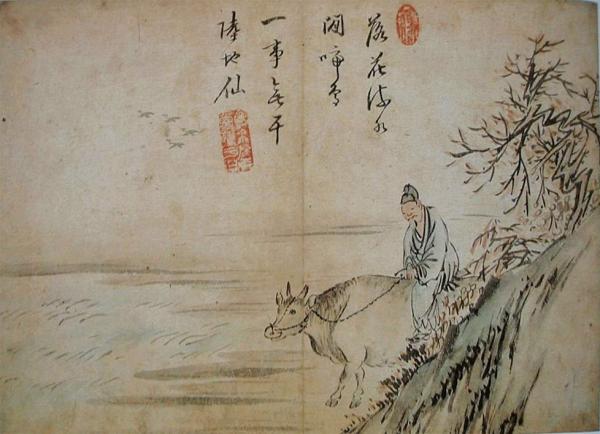 落花流水
閑啼鳥
一事無干
陸地仙